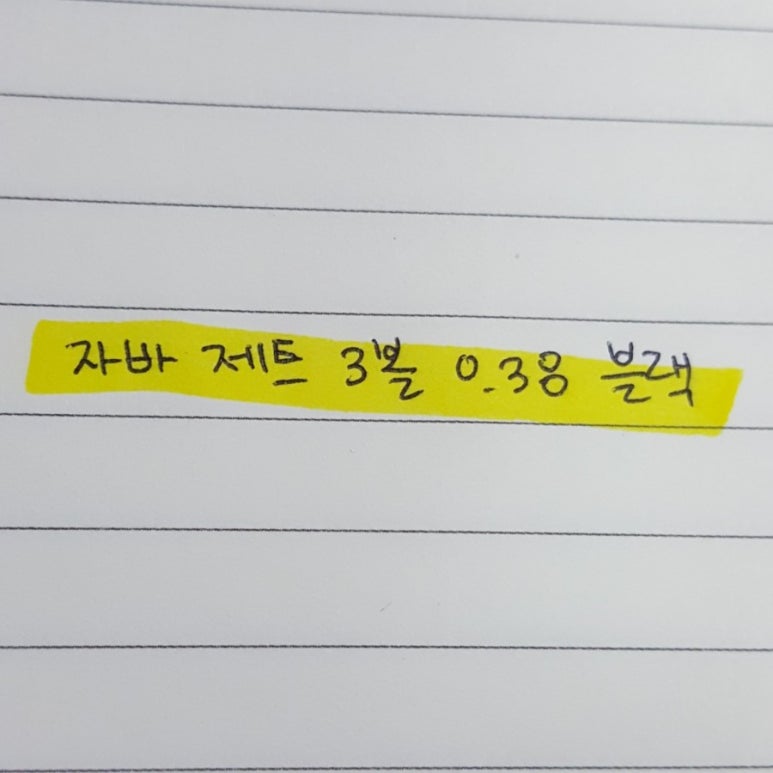 자바 제트 3볼 0.38 블랙